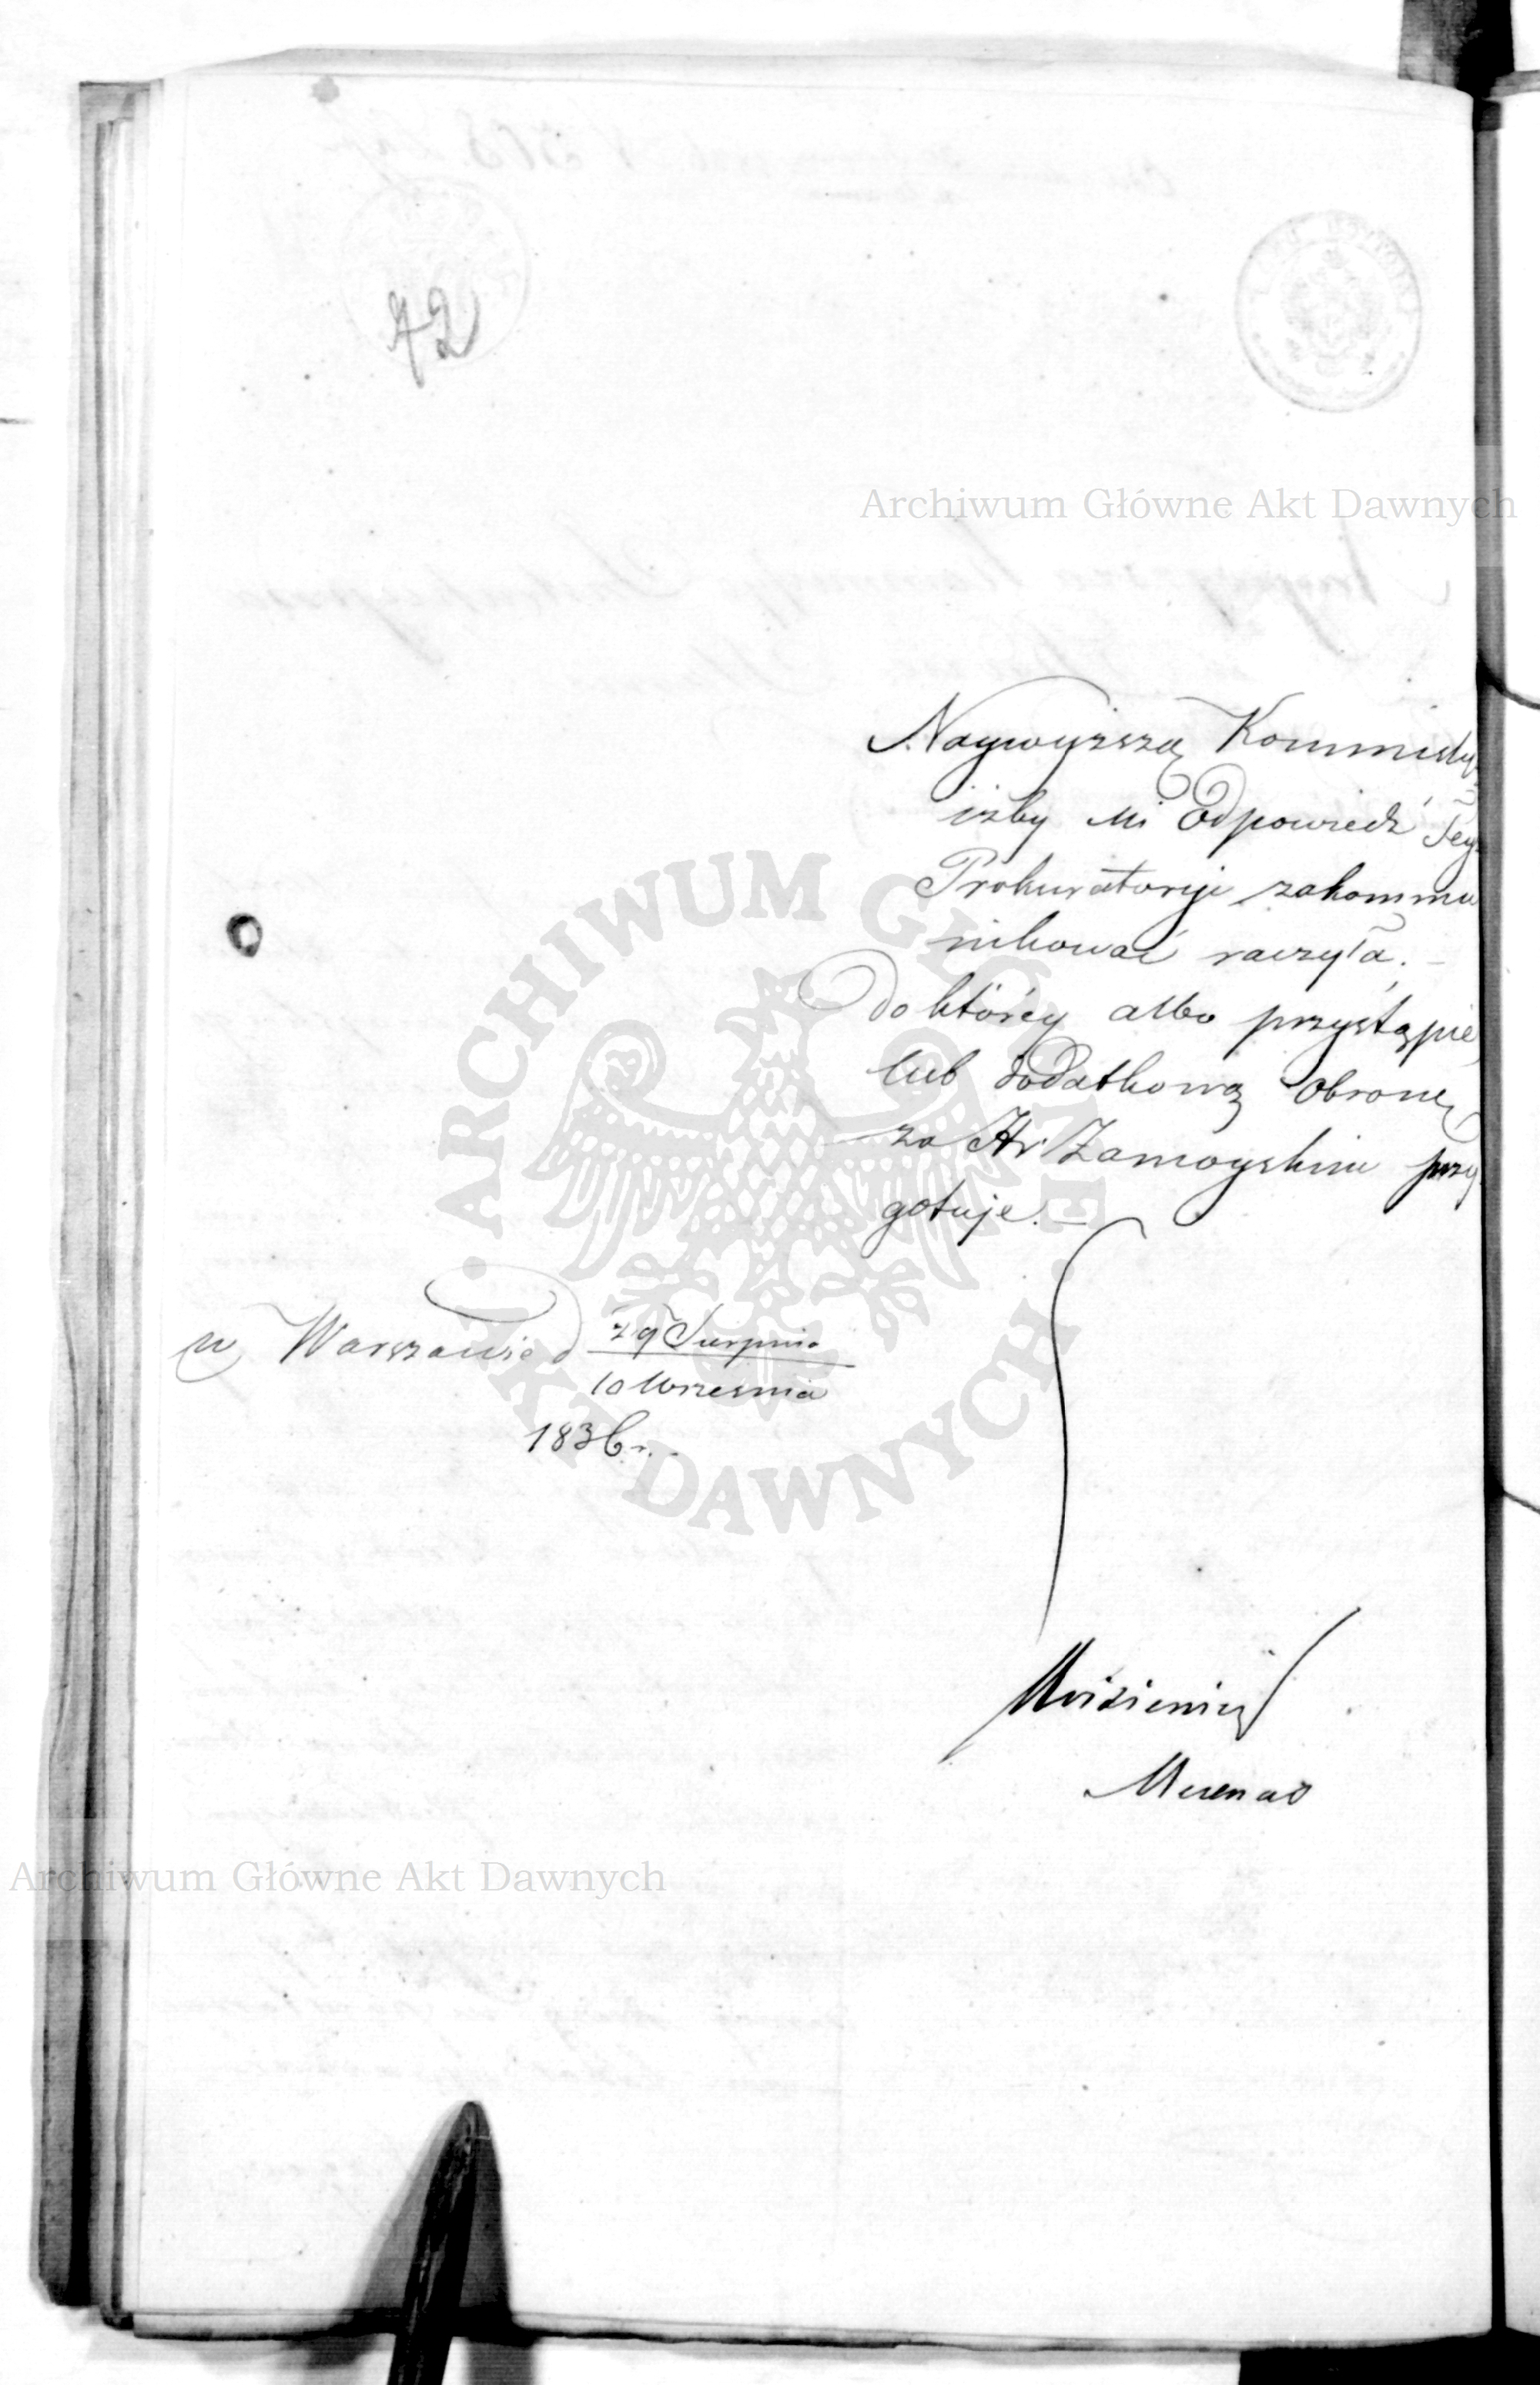 42
Archiwum Główne Akt Dawnych
Naywyższą Kommissy
iżby mi Odpowiedź Tey
Prokuratoryi zakommu
nikować raczyła. –
do któréy albo przystąpię
lub dodatkową obronę
za Hr Zamoyskim przy
gotuje. –
w Warszawie d 29 Sierpnia
10 Września
1836 r.
Mecenas
Archiwum Główne Akt Dawnych
ARCHIWUM GŁÓWNE AKT DAWNYCH